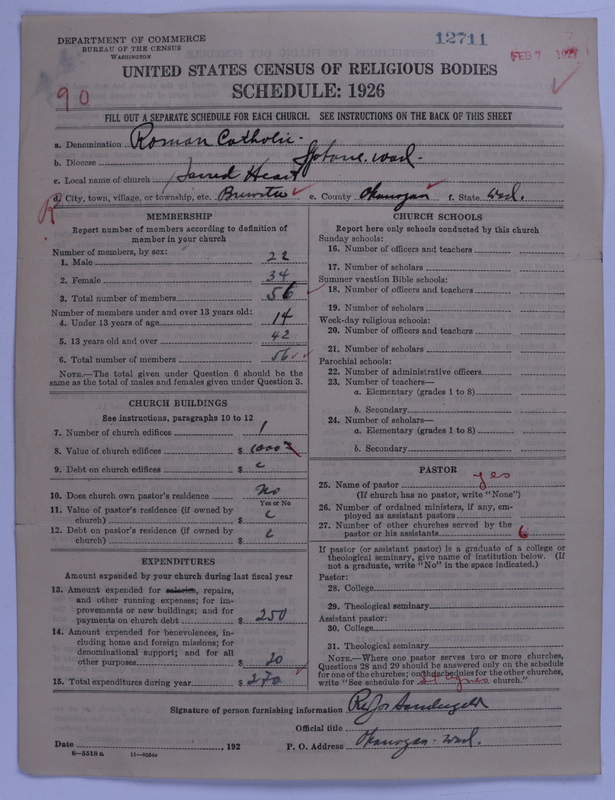 DEPARTMENT OF COMMERCE
BUREAU OF THE CENSUS
WASHINGTON
12711
FEB 7 1927
UNITED STATES CENSUS OF RELIGIOUS BODIES
SCHEDULE: 1926
90
FILL OUT A SEPARATE SCHEDULE FOR EACH CHURCH. SEE INSTRUCTIONS ON THE BACK OF THIS SHEET
a. Denomination Roman Catholic
b. Diocese Spokane. Wash.
c. Local name of church Sacred Heart
d. City, town, village, or township, etc. Brewster e. County Okanogan f. State Wash.
MEMBERSHIP
Report number of members according to definition of member in your church
Number of members, by sex:
1. Male 22
2. Female 34
3. Total number of members 56
Number of members under and over 13 years old:
4. Under 13 years of age 14
5. 13 years old and over 42
6. Total number of members 56
NOTE.—The total given under Question 6 should be the same as the total of males and females given under Question 3.
CHURCH BUILDINGS
See instructions, paragraphs 10 to 12
7. Number of church edifices 1
8. Value of church edifices $ 1000
9. Debt on church edifices $
10. Does church own pastor's residence No
Yes or No
11. Value of pastor's residence (if owned by church) $
12. Debt on pastor's residence (if owned by church) $
EXPENDITURES
Amount expended by your church during last fiscal year
13. Amount expended for salaries, repairs, and other running expenses; for improvements or new buildings; and for payments on church debt $ 250
14. Amount expended for benevolences, including home and foreign missions; for denominational support; and for all other purposes $ 20
15. Total expenditures during year $ 270
CHURCH SCHOOLS
Report here only schools conducted by this church
Sunday schools:
16. Number of officers and teachers
17. Number of scholars
Summer vacation Bible schools:
18. Number of officers and teachers
19. Number of scholars
Week-day religious schools:
20. Number of officers and teachers
21. Number of scholars
Parochial schools:
22. Number of administrative officers
23. Number of teachers—
a. Elementary (grades 1 to 8)
b. Secondary
24. Number of scholars—
a. Elementary (grades 1 to 8)
b. Secondary
PASTOR
25. Name of pastor yes
(If church has no pastor, write "None")
26. Number of ordained ministers, if any, employed as assistant pastors
27. Number of other churches served by the pastor or his assistants 6
If pastor (or assistant pastor) is a graduate of a college or theological seminary, give name of institution below. (If not a graduate, write "No" in the space indicated.)
Pastor:
28. College
29. Theological seminary
Assistant pastor:
30. College
31. Theological seminary
NOTE.—Where one pastor serves two or more churches, Questions 28 and 29 should be answered only on the schedule for one of the churches; on the schedules for the other churches, write "See schedule for St Agnes church."
Signature of person furnishing information Rev Jos
Official title
Date , 192 P. O. Address Okanogan. Wash.
8—5518 a